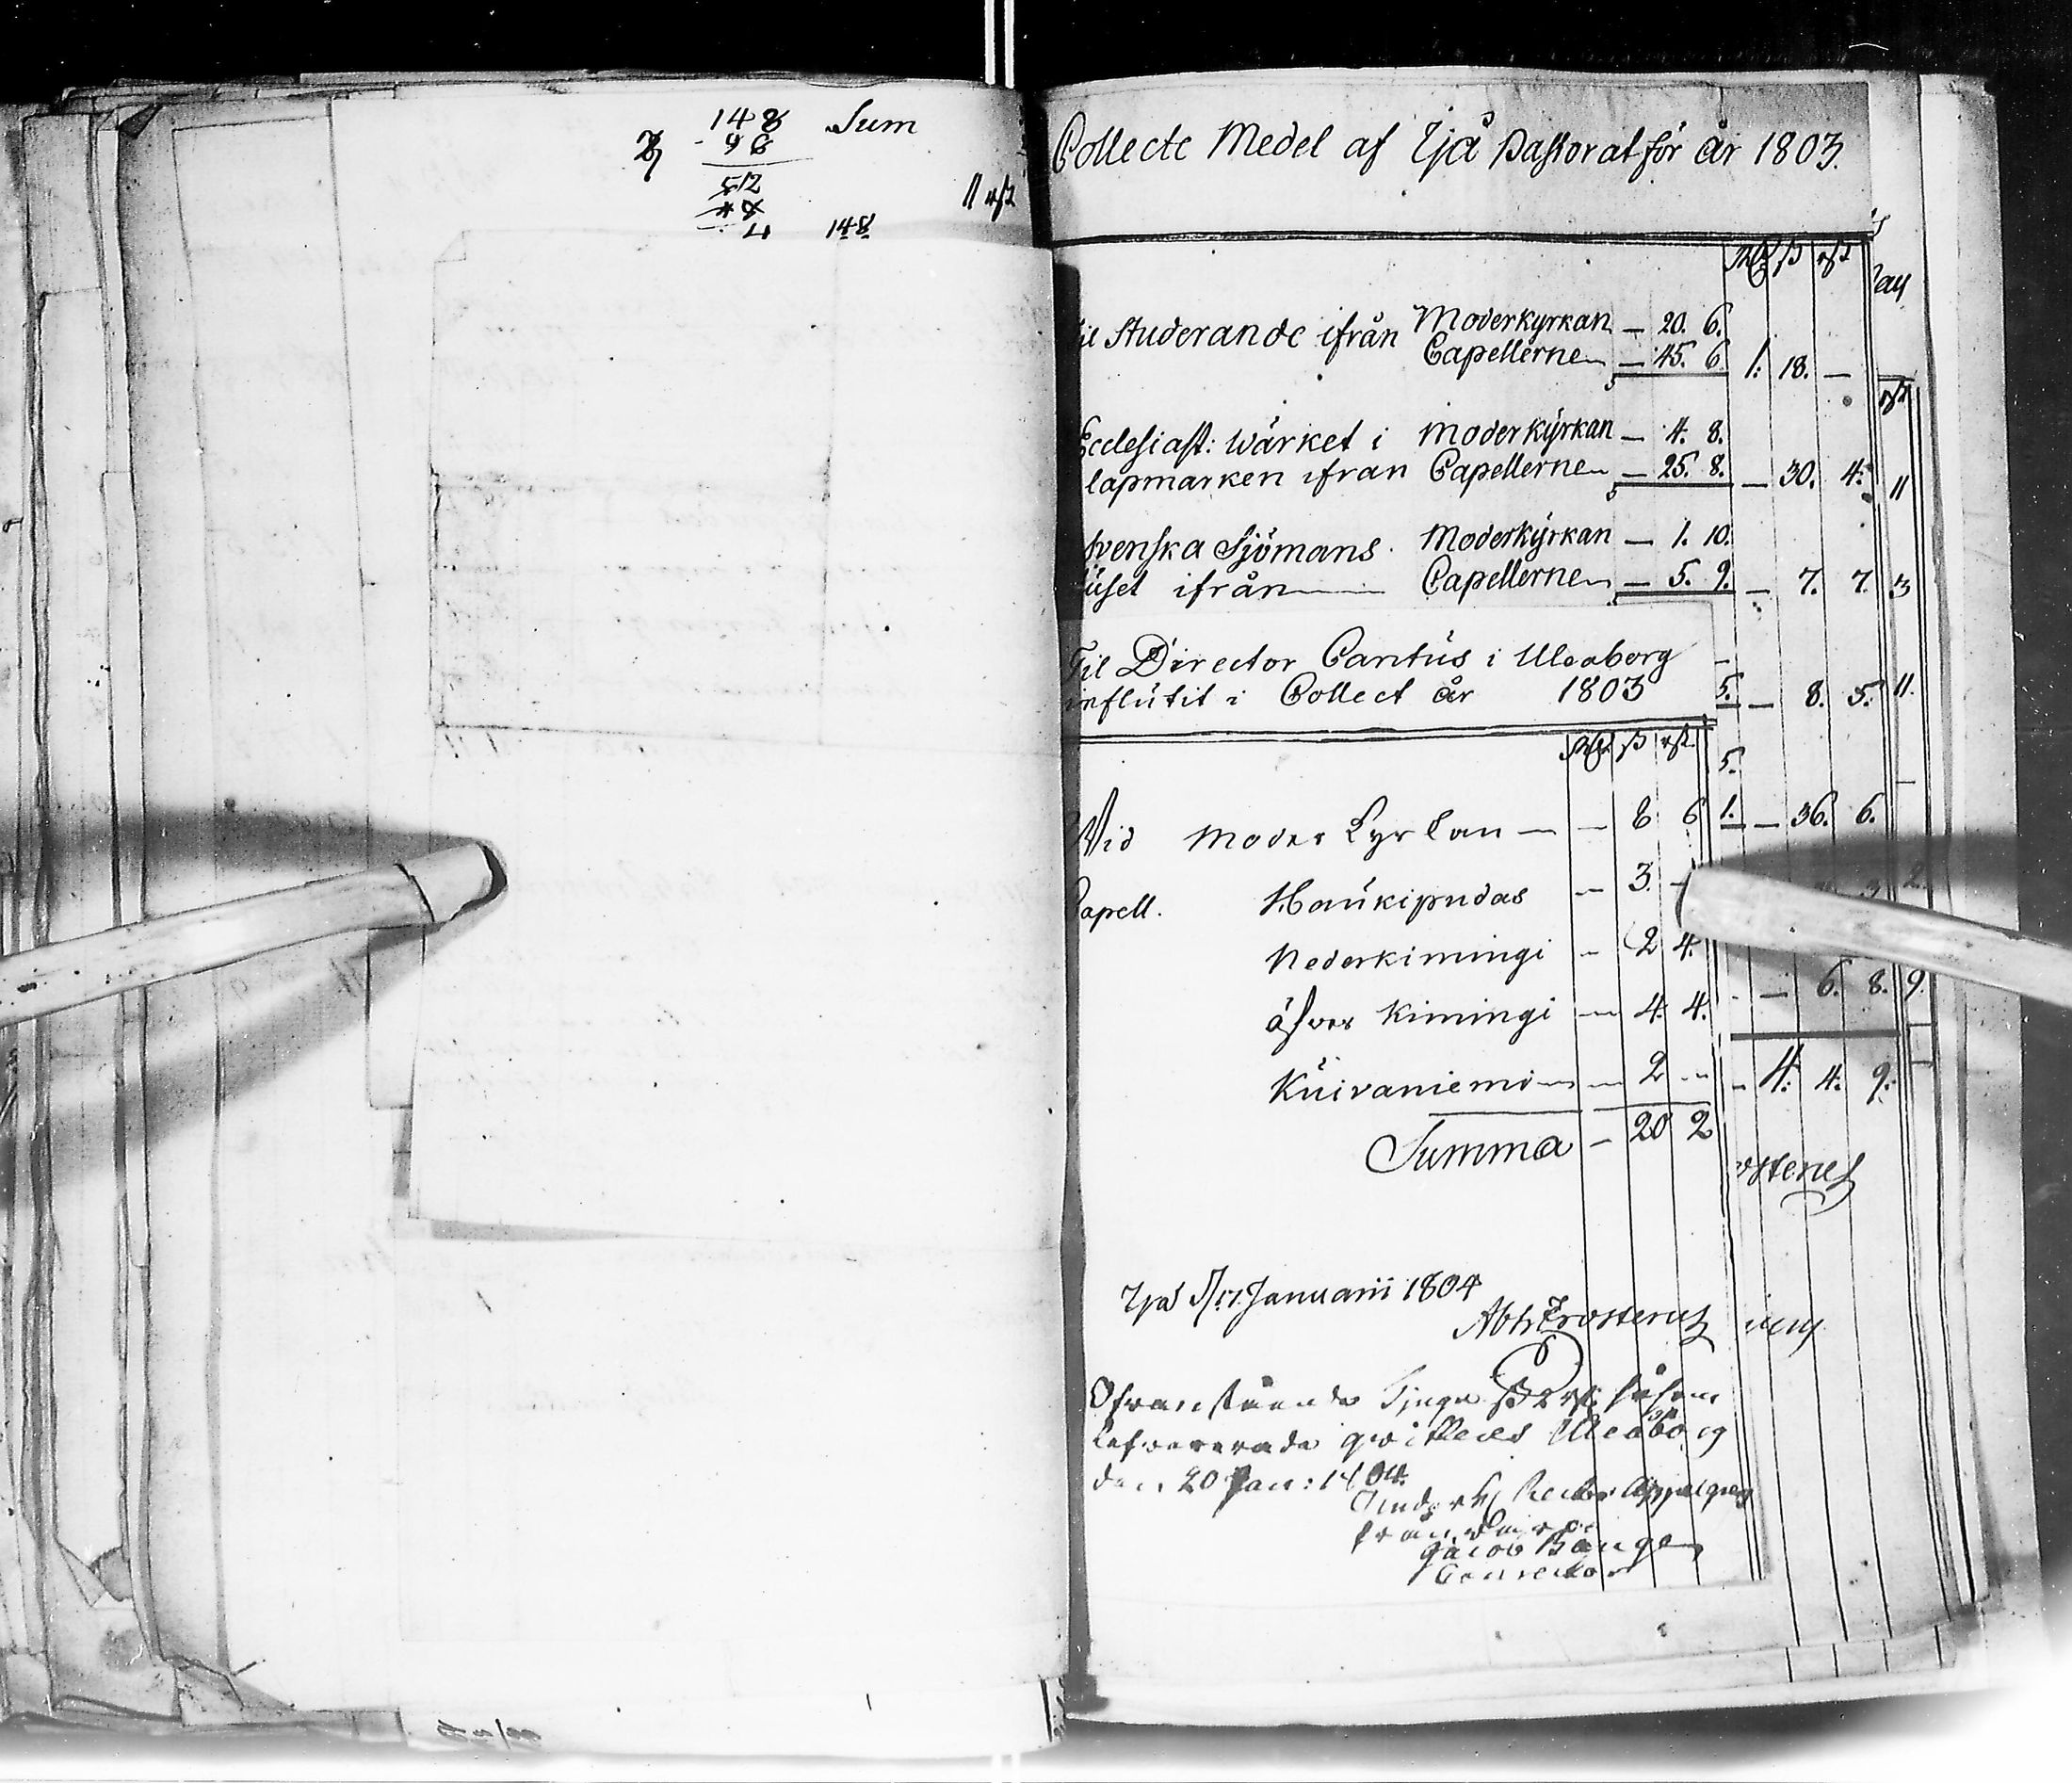 148 Sum
96
52
148
11 rst
Collecte Medel af Ijå Pastorat för år 1803.
Rd ß rst
til Studerande ifrån Moderkyrkan — 20. 6.
Capellerne — 45. 6. 1. 18. —
Ecclesiast: wärket i Moderkyrkan — 4. 8.
lapmarken ifran Capellerne — 25. 8. — 30. 4. 11
Svenska Sjömans Moderkyrkan — 1. 10.
huset ifrån Capellerne — 5. 9. — 7. 7. 3
Til Director Cantus i Uleaborg
influtit i Collect år 1803 5. — 8. 5. 11.
Rd ß rst
5.
Wid Moder Kyrkan — — 8 6 1. — 36. 6.
Capell. Haukipudas — 3. —
Nederkimingi — 2 4.
öfver Kimingi — 4. 4. — 6. 8. 9.
Kuivaniemi — 2 — 4. 4. 9.
Summa — 20 2
ostenes
Ijå d. 17. Januarii 1804
Abh Frosterus
Ofvanstående Tjugu ß 2 rst såsom
lefvererade qvitteras Uleåborg
den 20 Jan: 1804.
Jacob Bange
Conrector